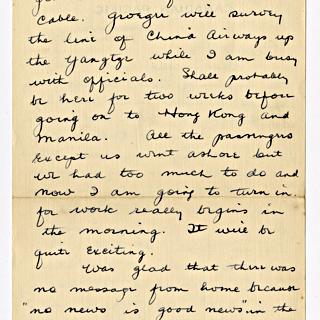 cable. George will survey
the line of China Airways up
the Yangtze while I am busy
with officials. Shall probably
be here for two weeks before
going on to Hong Kong and
Manila. All the passengers
except us went ashore but
we had too much to do and
now I am going to turn in
for work really begins in
the morning. It will be
quite exciting.
Was glad that there was
no message from home because
"no news is good news" in the